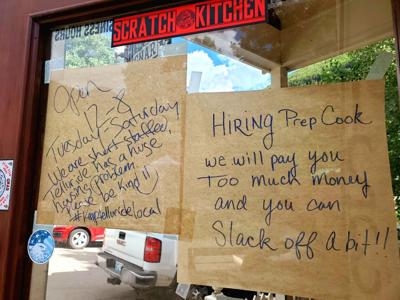 SCRATCH KITCHEN
Open
12-8
Tuesday-Saturday
We are short staffed,
Telluride has a huge
housing problem.
Please be kind!!
#Keeptelluridelocal
HIRING Prep Cook
we will pay you
Too much money
and you can
Slack off a bit!!